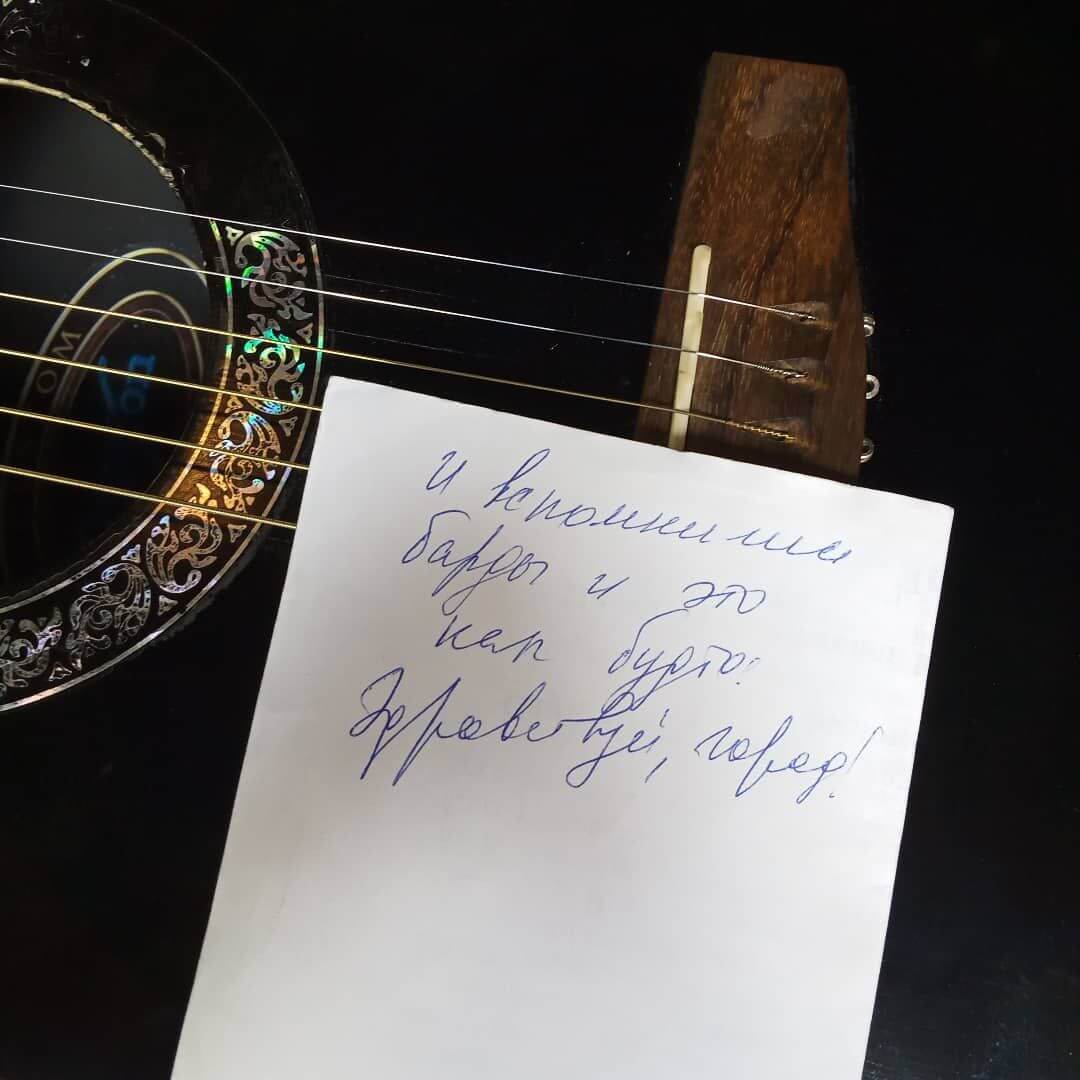 и вспомнили
барды и это
как будто:
Здравствуй, город!